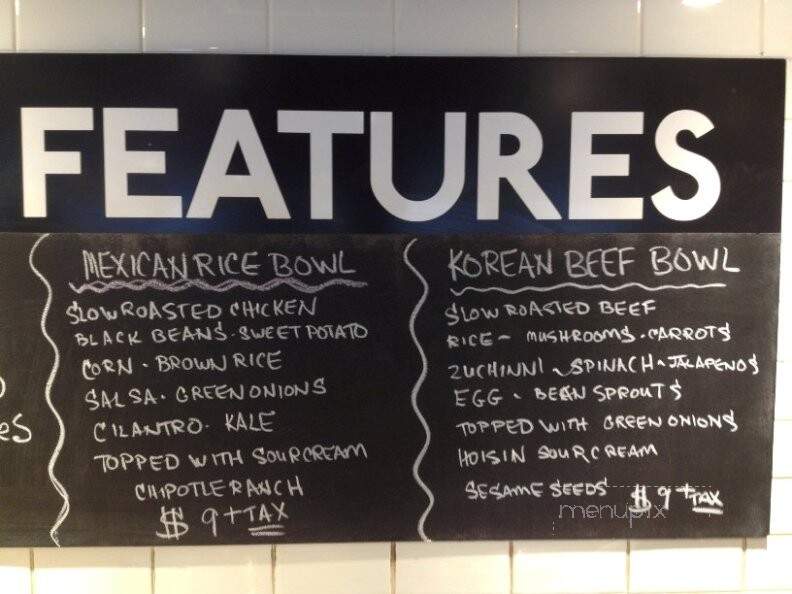 FEATURES
es
MEXICAN RICE BOWL
SLOW ROASTED CHICKEN
BLACK BEANS · SWEET POTATO
CORN · BROWN RICE
SALSA · GREEN ONIONS
CILANTRO · KALE
TOPPED WITH SOUR CREAM
CHIPOTLE RANCH
$ 9 + TAX
KOREAN BEEF BOWL
SLOW ROASTED BEEF
RICE - MUSHROOMS · CARROTS
ZUCHINNI - SPINACH - JALAPENOS
EGG · BEAN SPROUTS
TOPPED WITH GREEN ONIONS
HOISIN SOUR CREAM
SESAME SEEDS $ 9 + TAX
menupix